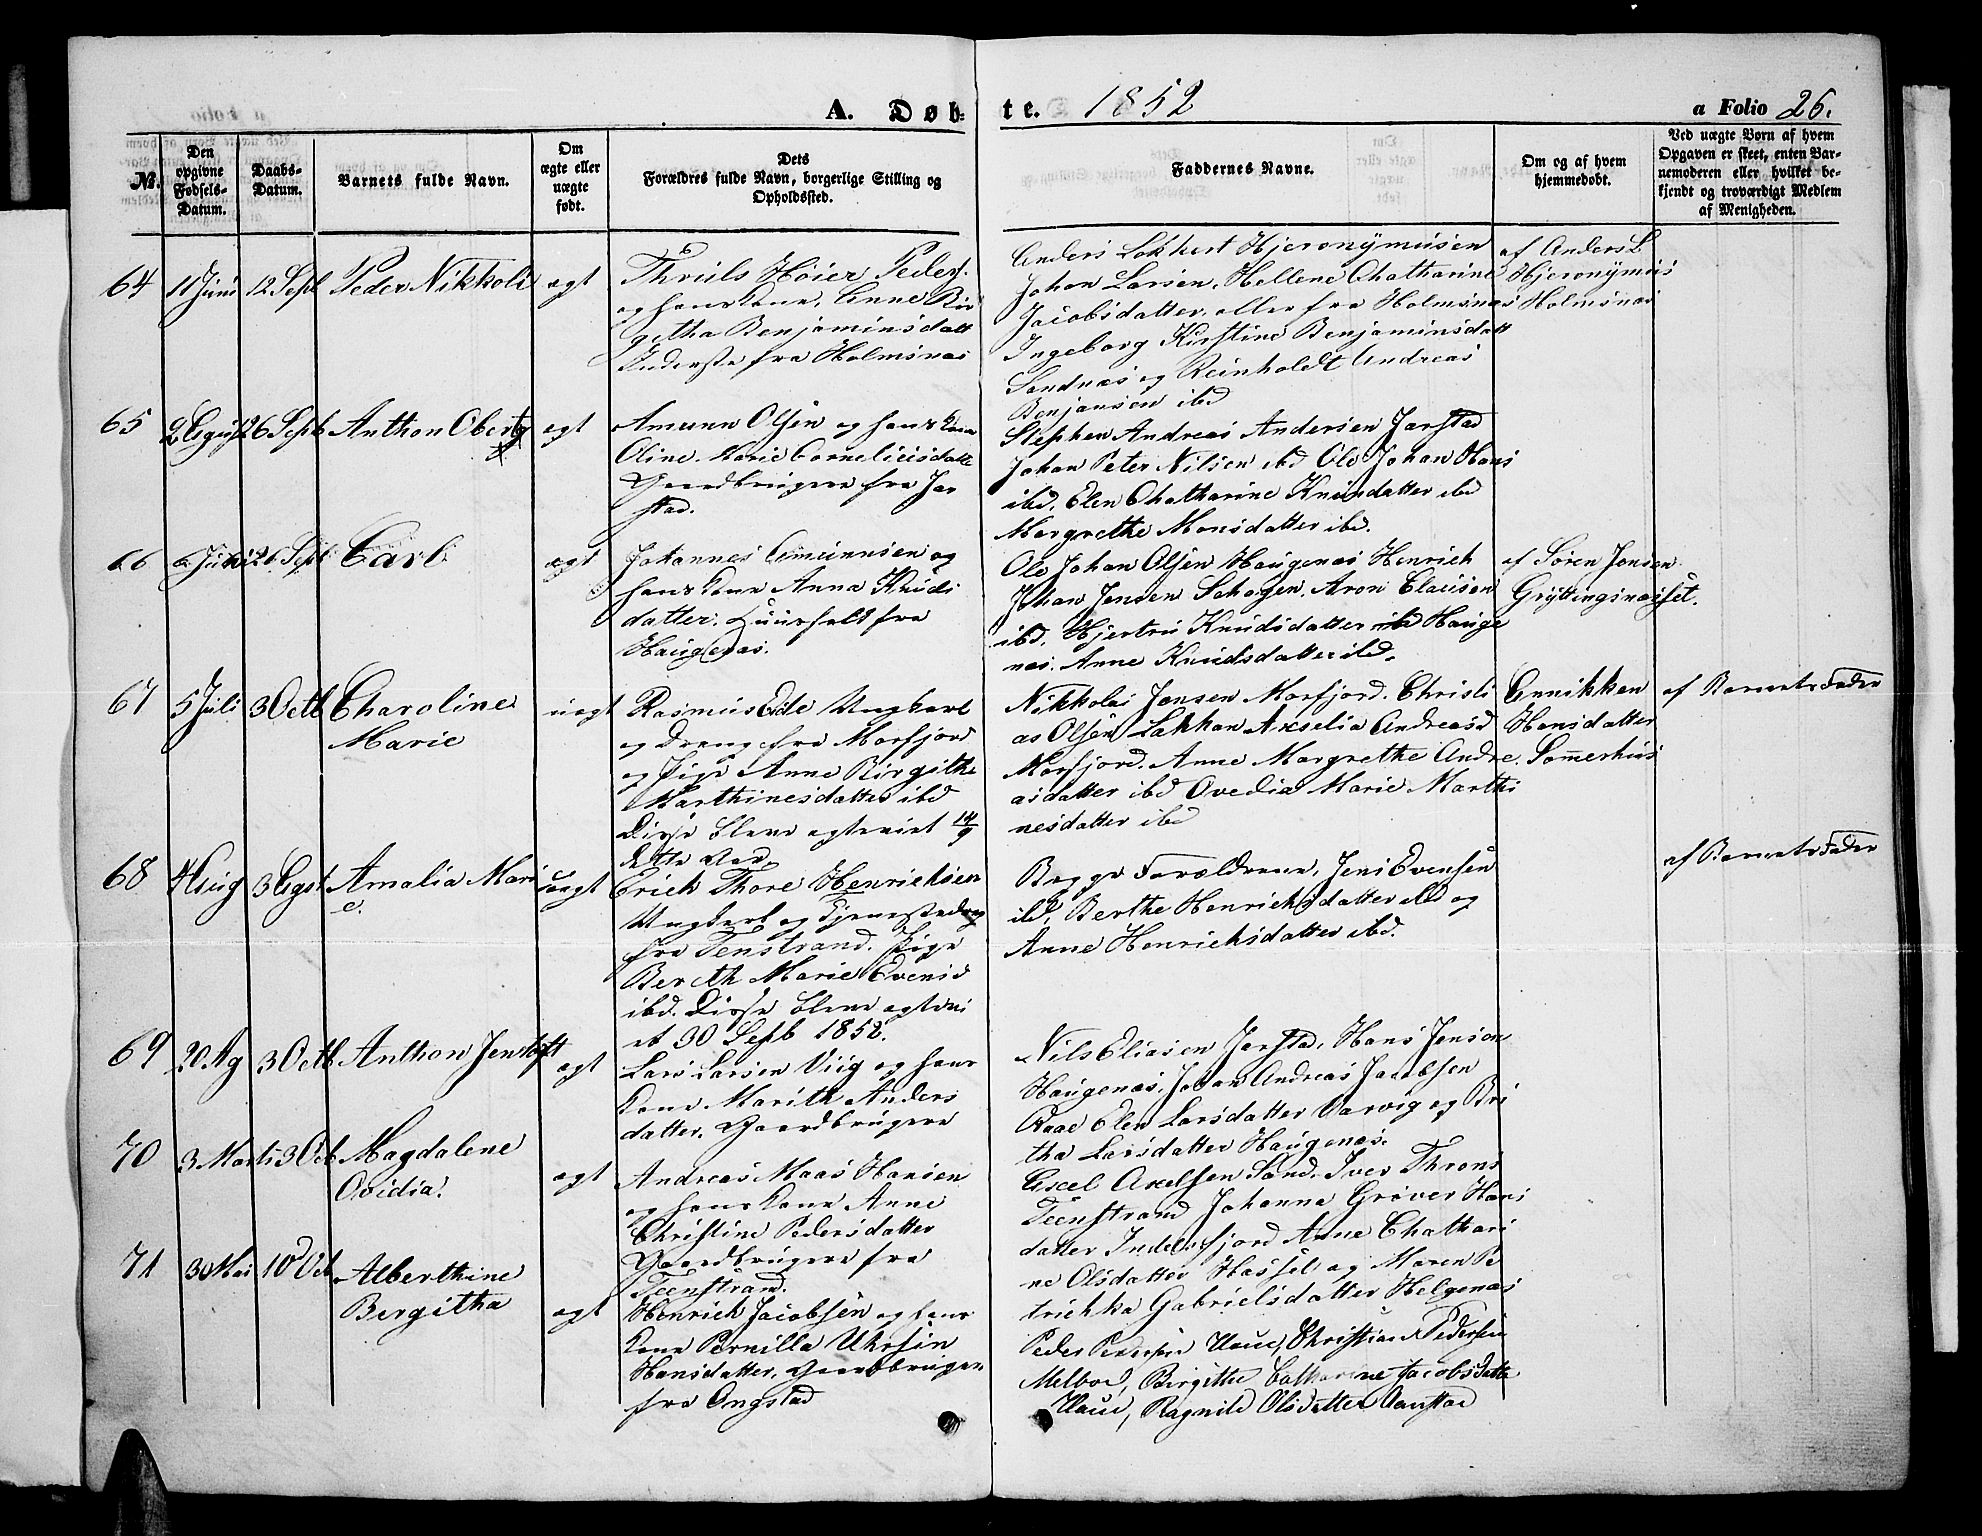 A. Døb-
te. 1852
a Folio 26.
№.
Den opgivne Fødsels-Datum.
Daabs-Datum.
Barnets fulde Navn.
Om ægte eller uægte født.
Dets Forældres fulde Navn, borgerlige Stilling og Opholdssted.
Faddernes Navne.
Om og af hvem hjemmedøbt.
Ved uægte Børn af hvem Opgaven er skeet, enten Barnemoderen eller hvilket bekjendt og troværdigt Medlem af Menigheden.
64 11 Juni 12 Sept Peder Nikkoli ægt
Thruls Høier Peders.
og hans Kone, Anne Bir
githa Benjaminsdatt
Inderste fra Holmsnæs
Anders Lokkert Hjeronÿmüsen
Johan Larsen, Hellene Chatharine
Jacobsdatter, aller fra Holmsnæs
Ingeborg Kirstine Benjaminsdatt
Sandnæs og Reinholdt Andreas
Benjansen ibd
af Anders L
Hjeronÿmüs
Holmsnæs
65 2 Agust 26 Sept Anthon Oberg ægt
Amunn Olsen og hans Kone
Oline Marie Corneliüsdatte
Gaardbrugere fra Jar
stad.
Stephen Andreas Andersen Jarstad
Johan Peter Nilsen ibd Ole Johan Hans
ibd, Elen Chatharine Knüdatter ibd
Margrethe Monsdatter ibd.
66 6 Juni 26 Sept Carl ægt
Johannes Amünnsen og
hans Kone Anna Knüds
datter, Huusfolk fra
Haugenæs.
Ole Johan Olsen Haugenæs Henrich
Johan Jensen Schogen, Aron Clausen
ibd. Hjertrü Knudsdatter ibd Hauge
næs. Anne Knüdsdatter ibd.
af Søren Jensen
Grÿttingsnæsset.
67 5 Juli 3 Octb Charoline
Marie
uægt
Rasmus Ede Ungkarl
og Dreng fra Morfjord
og Pige Anne Birgithe
Marthinesdatter ibd
Disse bleve ægteviet 14/9
dette Aar.
Nikkolai Jensen Morfjord. Christi
as Olsen Lakkan Axselia Andreasd
Morfjord. Anne Margrethe Andre
asdatter ibd Ovedia Marie Marthi
nesdatter ibd
Annikken
Hansdatter
Somerhüs
af Barnets Fader
68 4 Aug 3 Agst Amalia Mari
e.
uægt
Erick Thore Henrichsen
Ungkarl og Tjenestedreng
fra Tenstrand. Pige
Bereth Marie Evensd
ibd. Disse bleve ægtevi
et 30 Septb 1852.
Begge Forældrene, Jens Evensen
ibd, Berthe Henrichsdatter ibd og
Anne Henrichsdatter ibd.
af Barnets Fader
69 20 Ag 3 Octb Anthon Jentoft ægt
Lars Larsen Viig og hans
Kone Marith Anders
datter. Gaardbrugere
Nils Eliasen Jarstad, Hans Jensen
Haugenæs, Johan Andreas Jacobsen
Raae Elen Larsdatter Varvig og Bri
tha Larsdatter Haugenæs.
70 3 Marts 3 Oct Magdalene
Ovidia.
ægt
Andreas Maas Hansen
og hans Kone Anne
Christine Pedersdatter
Gaardbrugere fra
Teenstrand.
Axel Axelsen Sand. Iver Throns
Teenstrand Johanna Grøver Hans
datter Indenfjord Anne Chathari
ne Olsdatter Hassel og Maren Pe
trichka Gabrielsdatter Helgenæs
71 30 Mai 10 Oct Alberthine
Bergitha
ægt
Henrich Jacobsen og hans
Kone Pernilla Uhrsin
Hansdatter, Gaardbrugere
fra Ongstad
Peder Pedersen Uaue, Christian Pedersen
Melboe, Birgithe Catharine Jacobsdatte
Uaue, Ragnild Olsdatter Vanstad